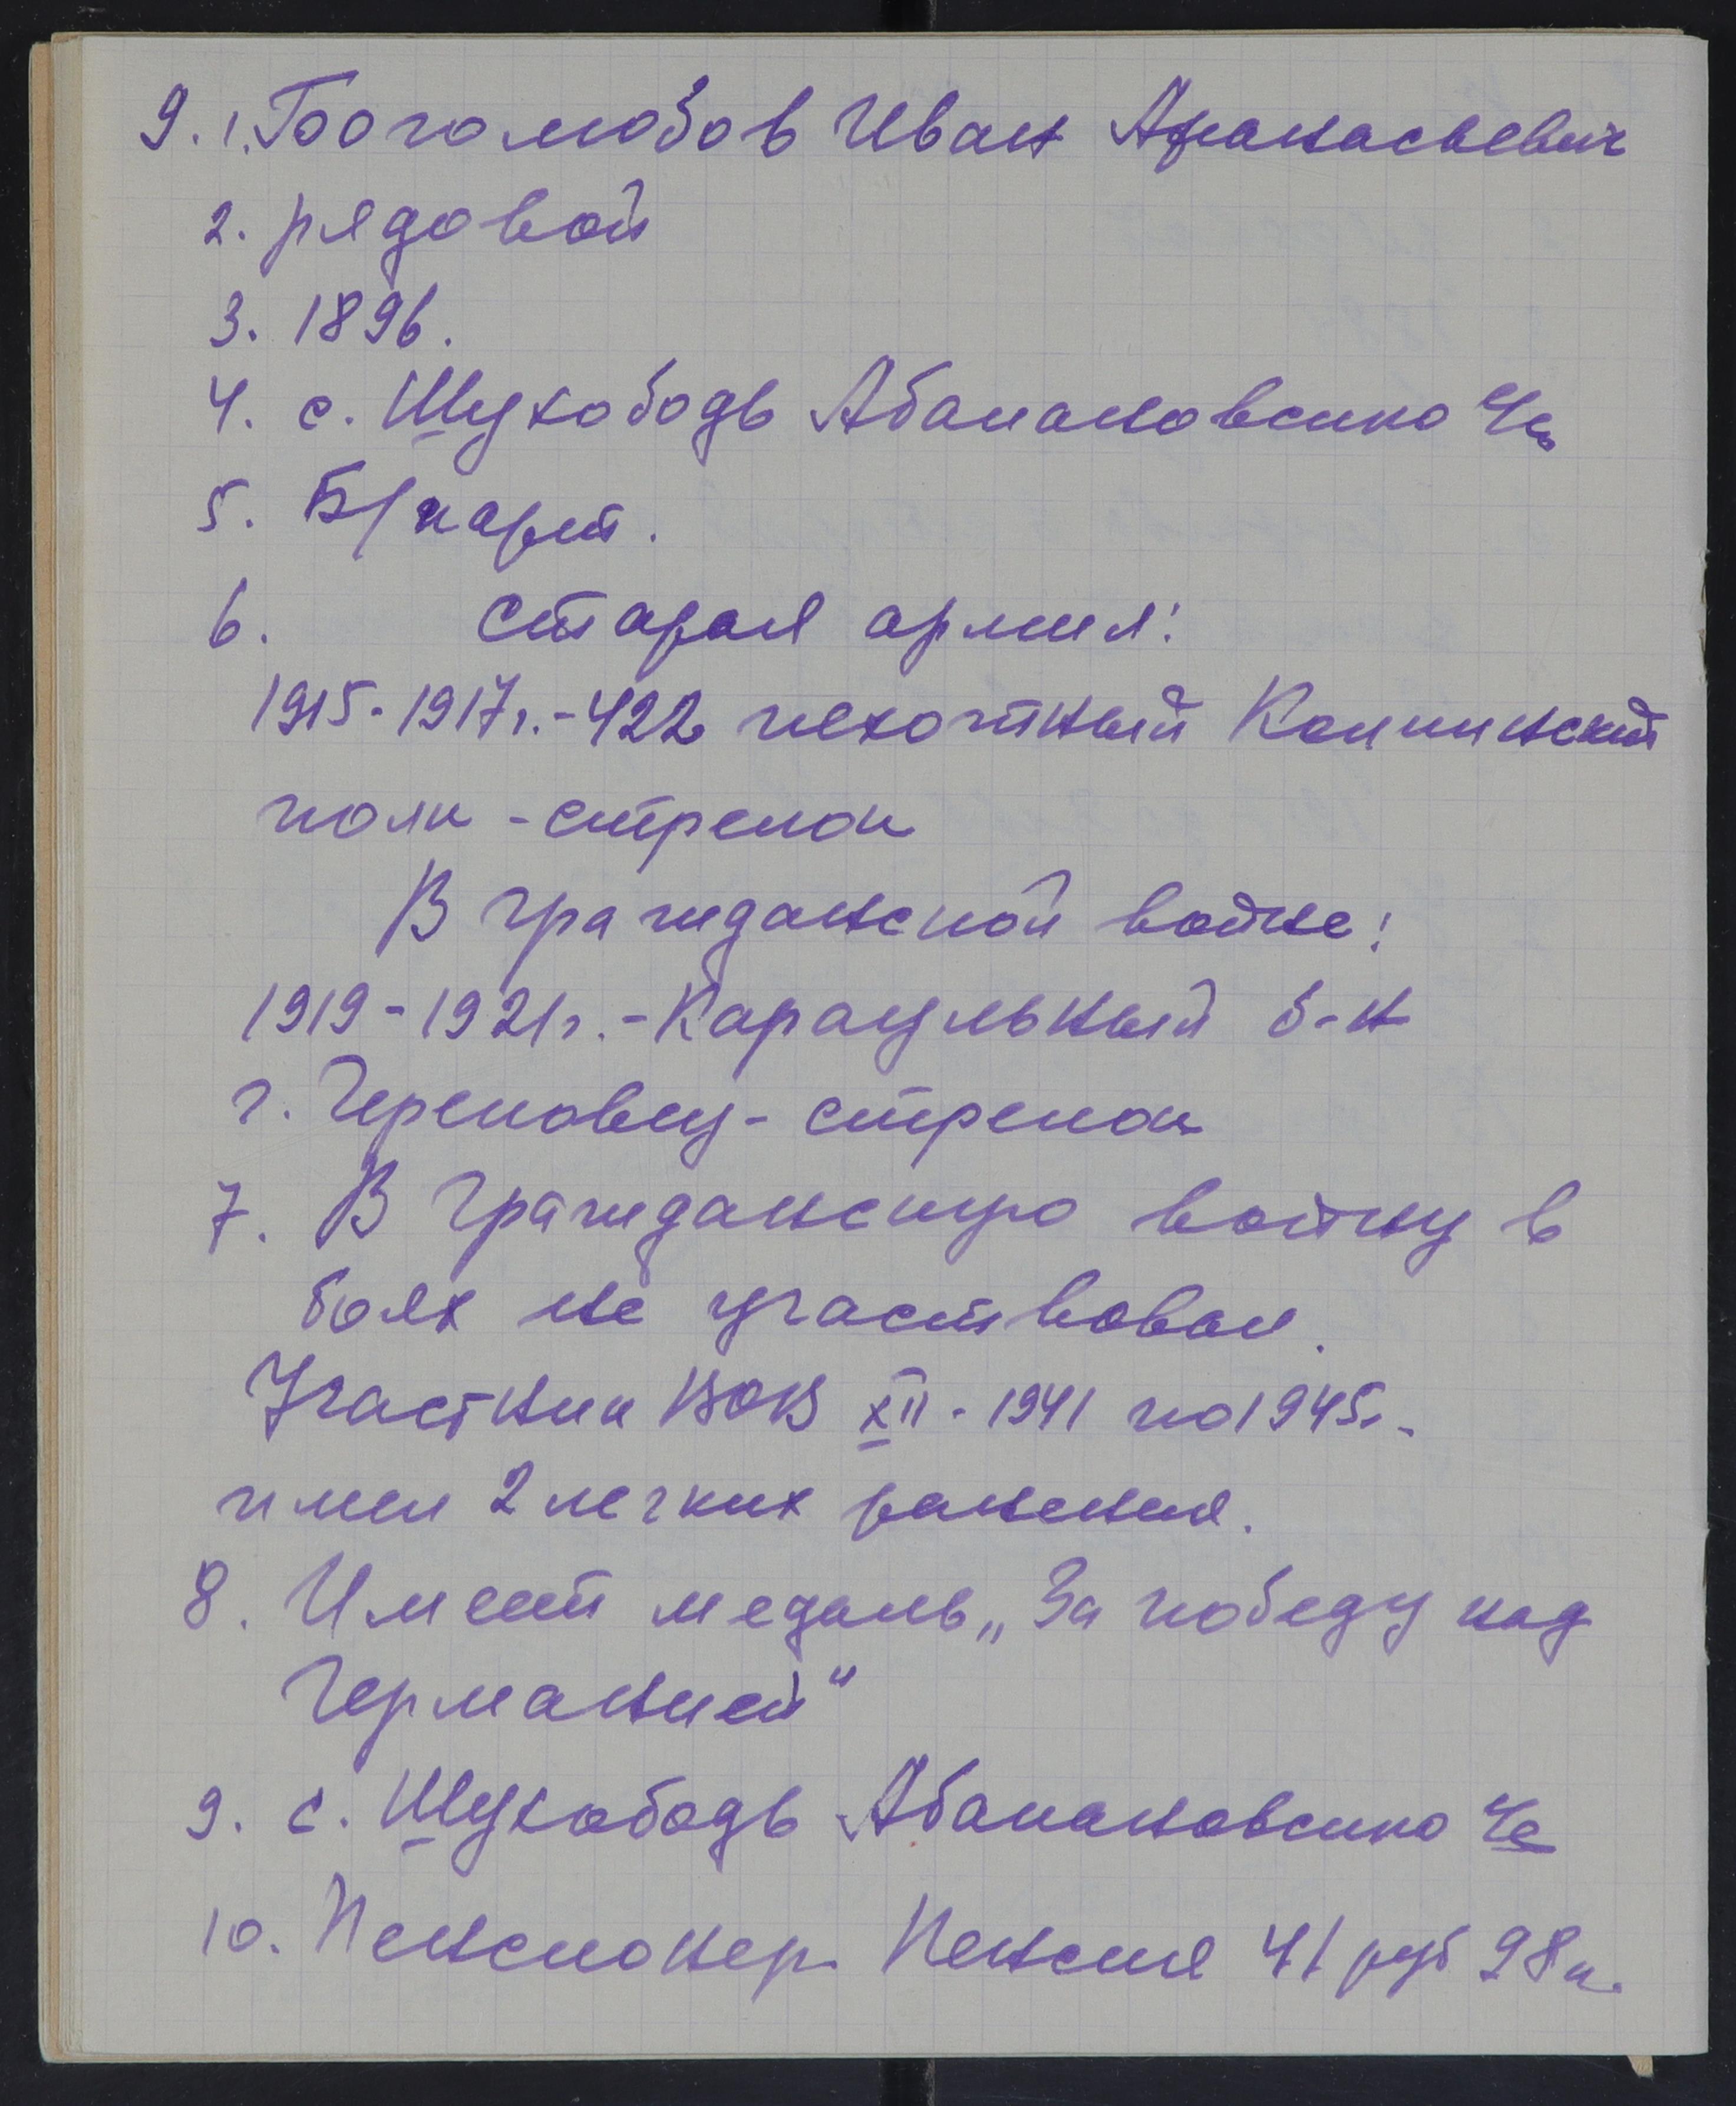 9. 1. Боголюбов Иван Афанасьевич
2. рядовой
3. 1896.
4. с. Шухободь Абакановского ЧС
5. Б/парт.
6. Старая армия:
1915-1917г. - 422 пехотный Колпинский
полк - стрелок
В гражданской войне:
1919-1921г. - Караульный б-н
г. Череповец - стрелок
7. В гражданскую войну в
боях не участвовал.
Участник ВОВ XII - 1941 по 1945г.
имел 2 легких ранения.
8. Имеет медаль „За победу над
Германией"
9. с. Шухободь Абакановского ЧС
10. Пенсионер. Пенсия 41 руб 98 к.